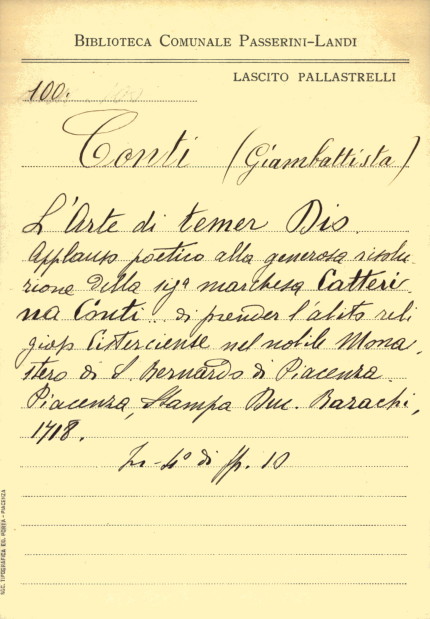 BIBLIOTECA COMUNALE PASSERINI-LANDI
LASCITO PALLASTRELLI
100.
Conti (Giambattista)
L'Arte di temer Dio.
Applauso poetico alla generosa risolu-
zione della sig.ª marchesa Catteri-
na Conti... di prender l'abito reli-
gioso Cisterciense nel nobile Mona-
stero di S. Bernardo di Piacenza.
Piacenza, Stampa Duc. Barachi,
1718.
In-4° di pp. 10
SOC. TIPOGRAFICA ED. PORTA - PIACENZA